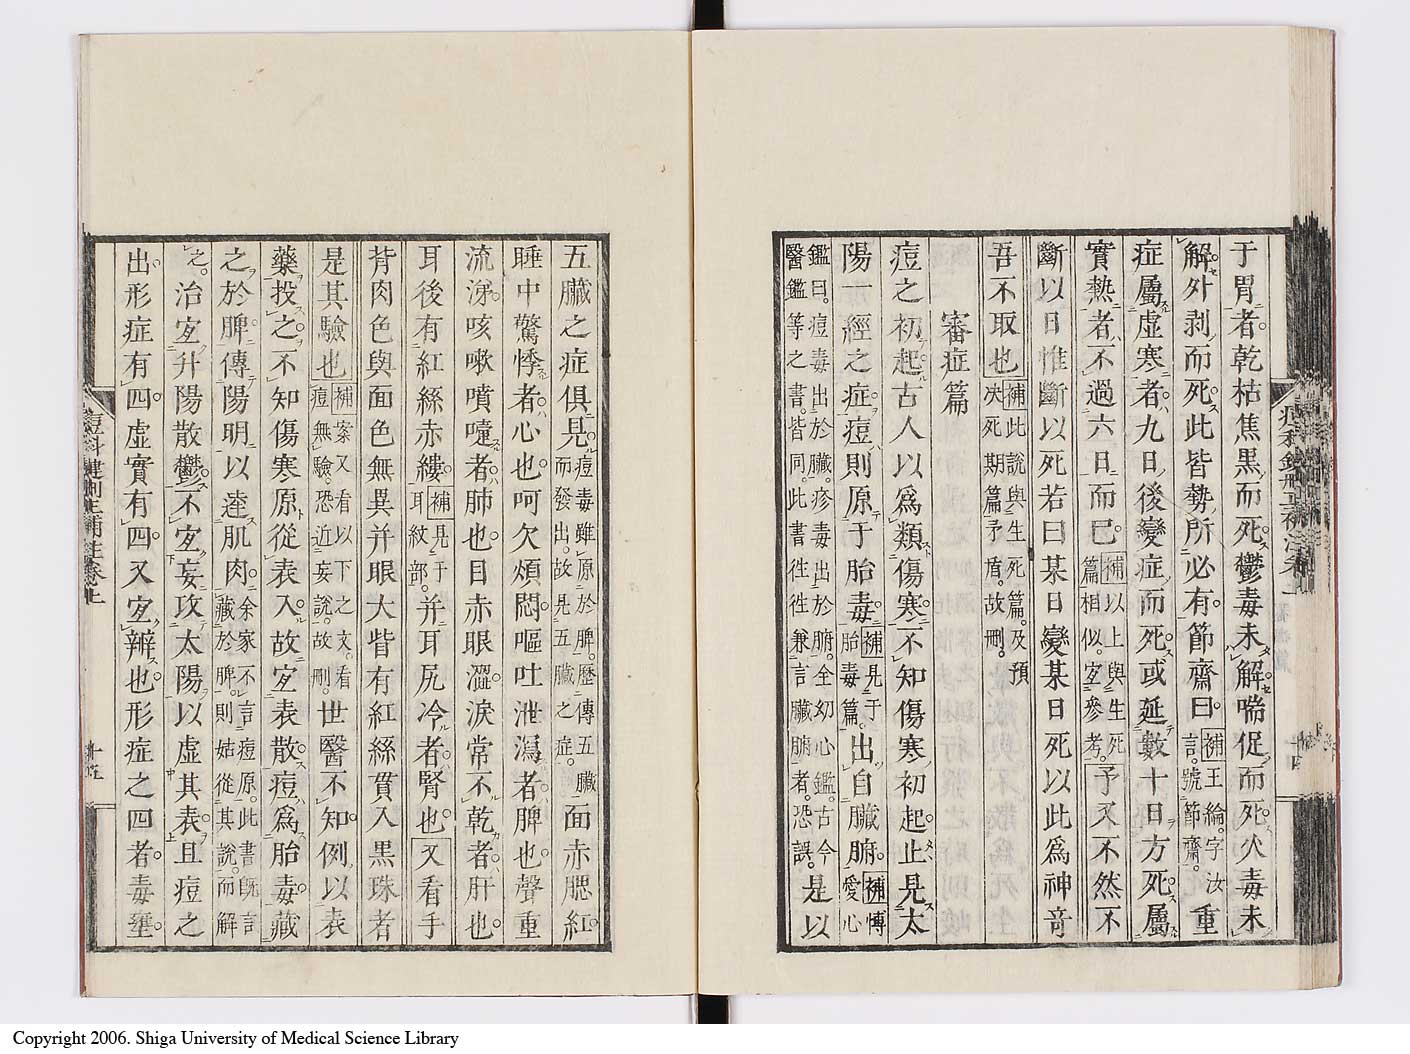 于胃者乾枯焦黒而死鬱毒未解喘促而死火毒未
解外剥而死此皆勢所必有節齋曰補王綸字汝言號節齋重
症屬虚寒者九日後變症而死或延數十日方死屬
實熱者不過六日而已補以上與生死篇相似宐參考予又不然不
斷以日惟斷以死若曰某日變某日死以此爲神竒
吾不取也補此說與生死篇及預决死期篇矛盾故刪
審症篇
痘之初起古人以爲類傷寒不知傷寒初起止見太
陽一經之症痘則原于胎毒補見于胎毒篇出自臟腑補愽愛心
鑑曰痘毒出於臟疹毒出於腑全幼心鑑古今醫鑑等之書皆同此書徃徃兼言臟腑者恐誤是以
五臟之症俱見痘毒雖原於脾歴傳五臟而發出故見五臟之症面赤腮紅
睡中驚悸者心也呵欠煩悶嘔吐泄瀉者脾也聲重
流涕咳嗽噴嚔者肺也目赤眼澀淚常不乾者肝也
耳後有紅絲赤縷補見于耳紋部并耳尻冷者腎也又看手
背肉色與面色無異并眼大眥有紅絲貫入黒珠者
是其驗也補案又看以下之文看痘無驗恐近妄說故刪世醫不知例以表
藥投之不知傷寒原從表入故宐表散痘爲胎毒藏
之於脾傳陽明以達肌肉余家不言痘原此書既言藏於脾則姑從其說而解
之治宐升陽散鬱不宐妄攻太陽以虚其表且痘之
出形症有四虚實有四又宐辨也形症之四者毒壅
十五
Copyright 2006. Shiga University of Medical Science Library